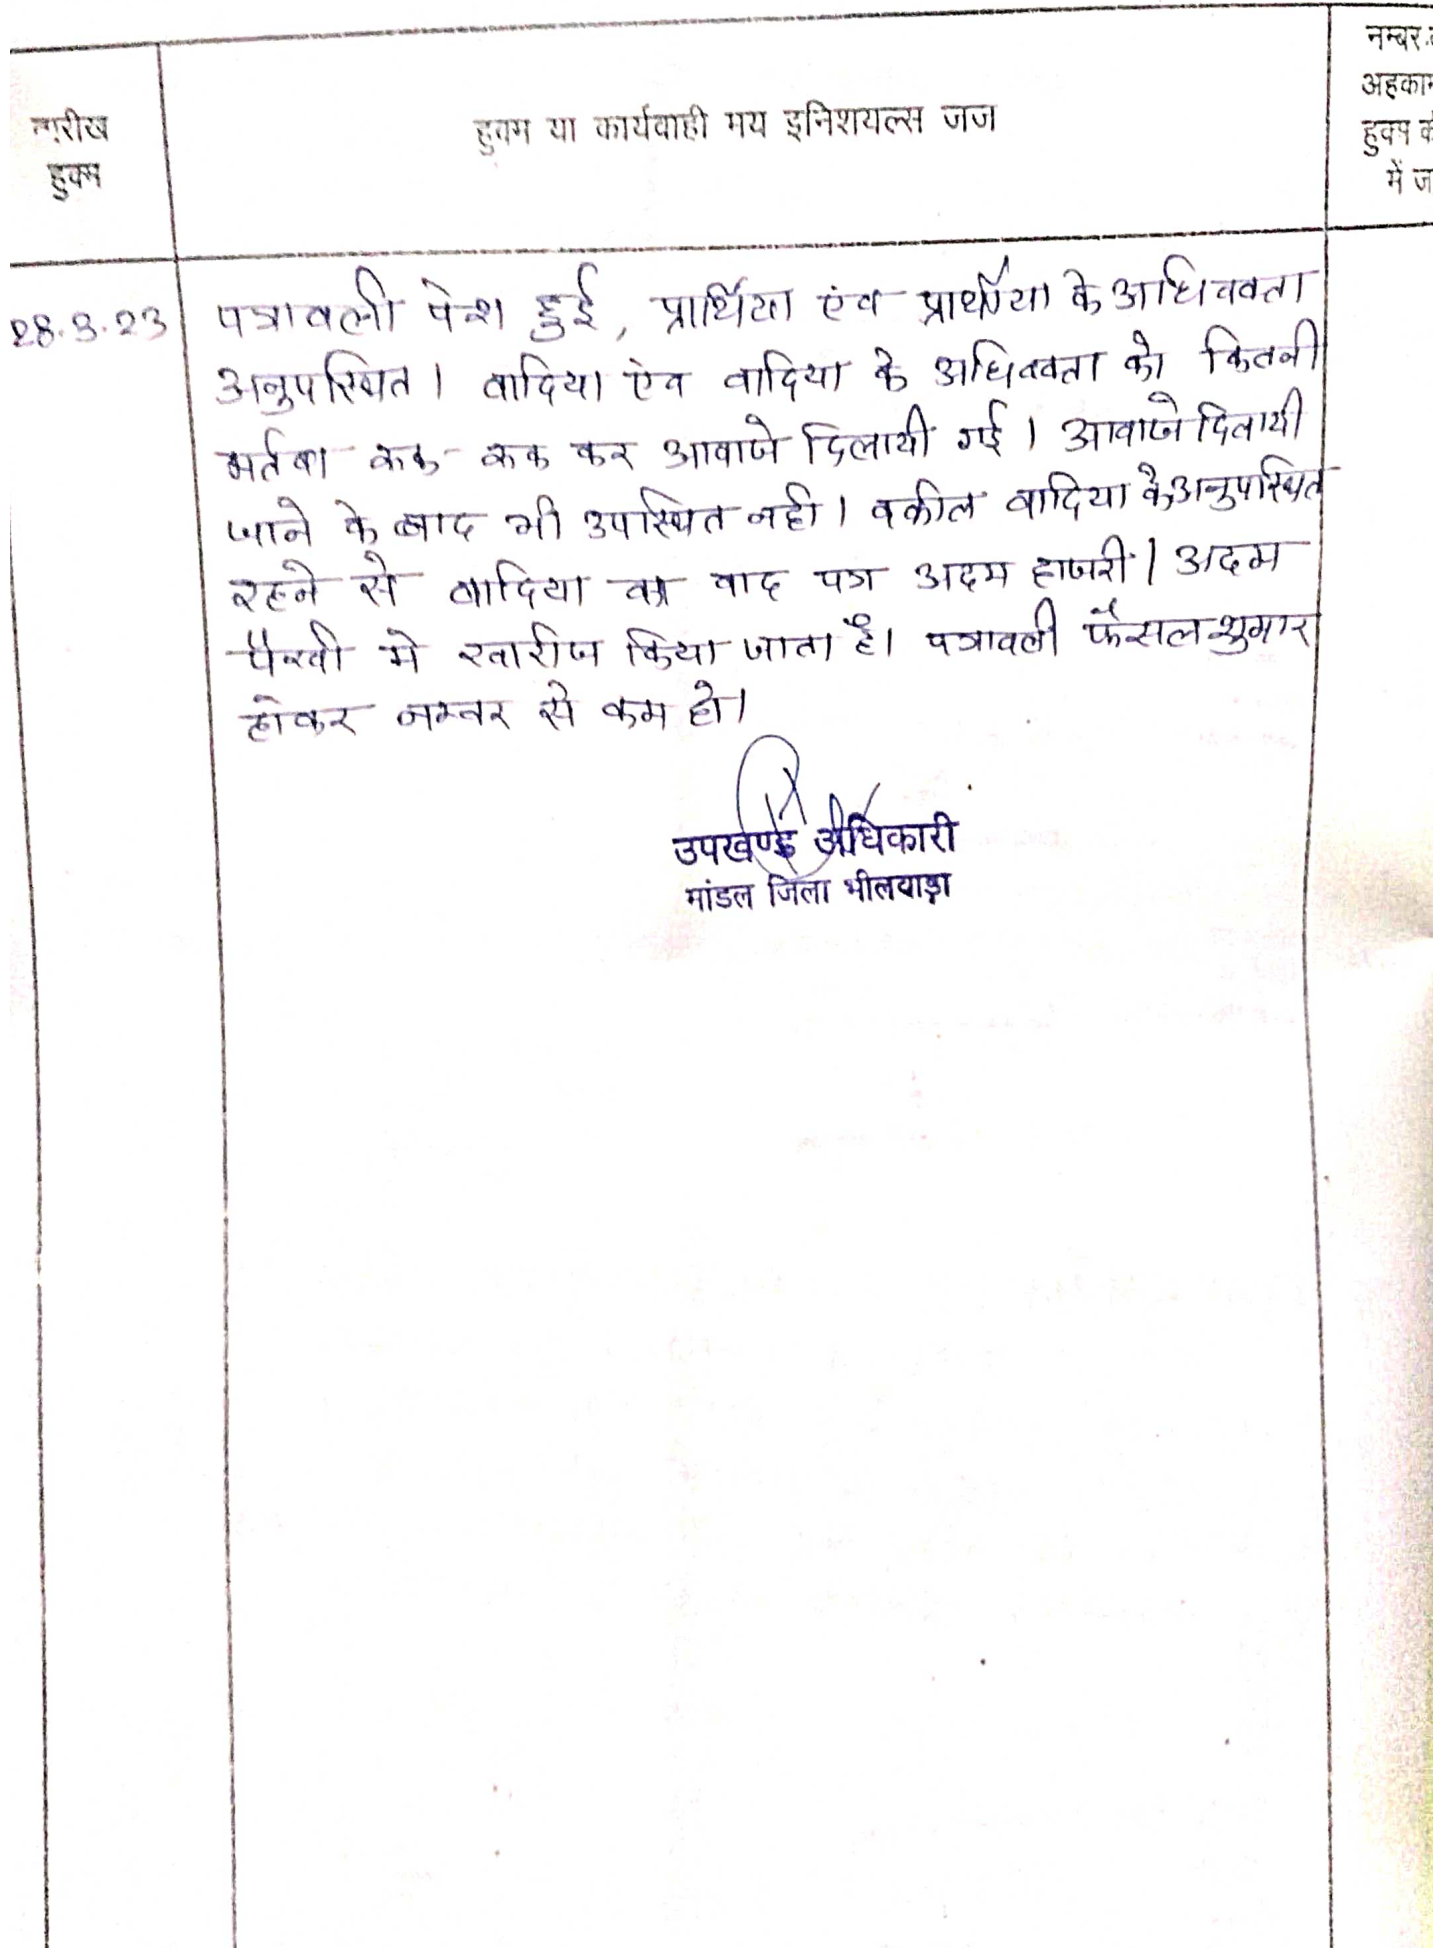 तारीख
हुक्म
हुक्म या कार्यवाही मय इनिशियल्स जज
नम्बर
अहकाम
हुक्म की
में ज
28.3.23
पत्रावली पेश हुई, प्रार्थिया एंव प्रार्थीया के अधिवक्ता
अनुपस्थित। वादिया एंव वादिया के अधिवक्ता को कितनी
मर्तबा रूक रूक कर आवाजे दिलायी गई। आवाजे दिलायी
जाने के बाद भी उपस्थित नही। वकील वादिया के अनुपस्थित
रहने से वादिया का वाद पत्र अदम हाजरी। अदम
पैरवी मे खारीज किया जाता है। पत्रावली फैसल शुमार
होकर नम्बर से कम हो।
उपखण्ड अधिकारी
मांडल जिला भीलवाड़ा